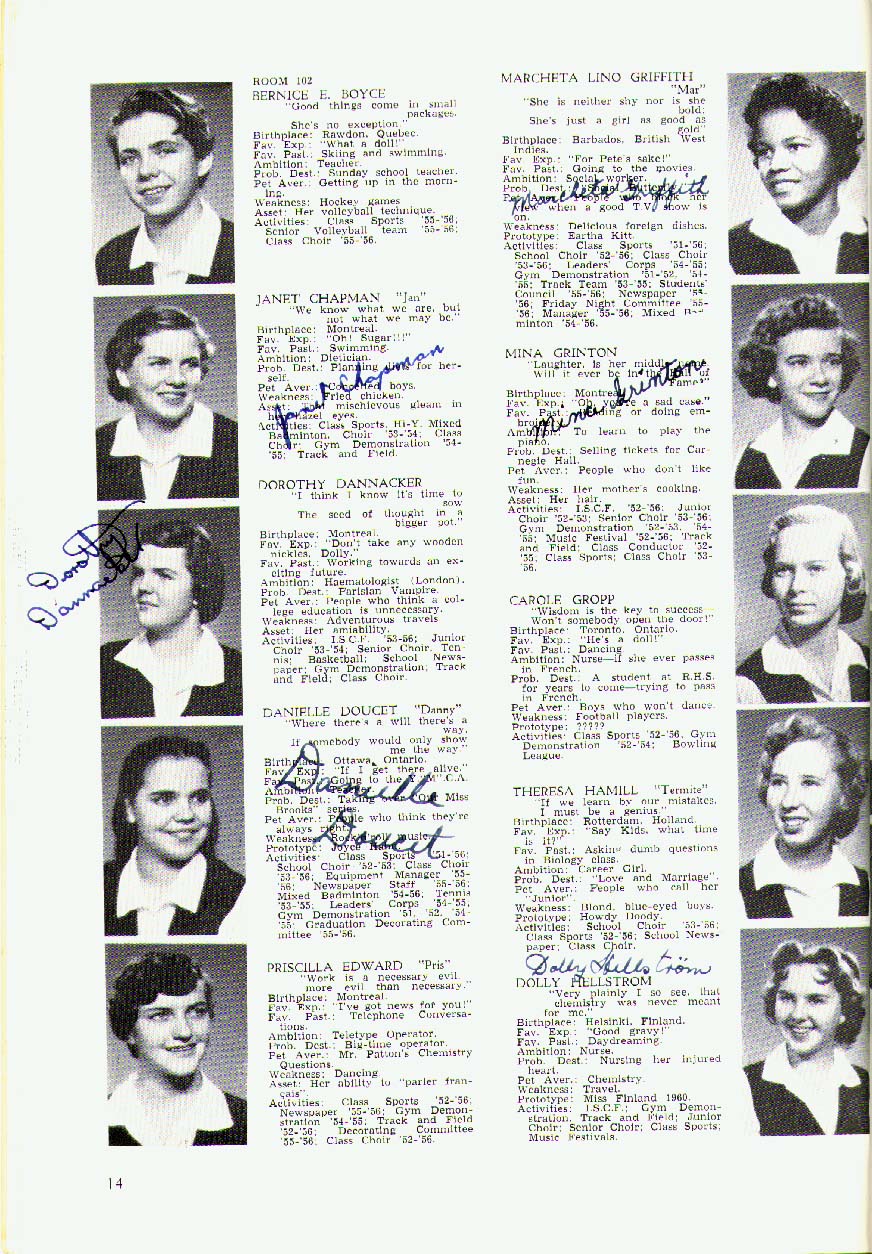 ROOM 102
BERNICE E. BOYCE
"Good things come in small
packages.
She's no exception."
Birthplace: Rawdon, Quebec.
Fav. Exp.: "What a doll!"
Fav. Past.: Skiing and swimming.
Ambition: Teacher.
Prob. Dest.: Sunday school teacher.
Pet Aver.: Getting up in the morn-
ing.
Weakness: Hockey games
Asset: Her volleyball technique.
Activities: Class Sports '55-'56;
Senior Volleyball team '55-'56;
Class Choir '55-'56.
JANET CHAPMAN "Jan"
"We know what we are, but
not what we may be."
Birthplace: Montreal.
Fav. Exp.: "Oh! Sugar!!!"
Fav. Past.: Swimming.
Ambition: Dietician.
Prob. Dest.: Planning diets for her-
self.
Pet Aver.: Conceited boys.
Weakness: Fried chicken.
Asset: That mischievous gleam in
her hazel eyes.
Activities: Class Sports, Hi-Y, Mixed
Badminton, Choir '53-'54; Class
Choir; Gym Demonstration '54-
'55; Track and Field.
Janet Chapman
DOROTHY DANNACKER
"I think I know it's time to
sow
The seed of thought in a
bigger pot."
Birthplace: Montreal.
Fav. Exp.: "Don't take any wooden
nickles, Dolly."
Fav. Past.: Working towards an ex-
citing future.
Ambition: Haematologist (London).
Prob. Dest.: Parisian Vampire.
Pet Aver.: People who think a col-
lege education is unnecessary.
Weakness: Adventurous travels
Asset: Her amiability.
Activities: I.S.C.F. '53-56; Junior
Choir '53-'54; Senior Choir, Ten-
nis; Basketball; School News-
paper; Gym Demonstration; Track
and Field; Class Choir.
Dorothy
DANIELLE DOUCET "Danny"
"Where there's a will there's a
way,
If somebody would only show
me the way."
Birthplace: Ottawa, Ontario.
Fav. Exp.: "If I get there alive."
Fav. Past.: Going to the Y."M".C.A.
Ambition: Teacher.
Prob. Dest.: Taking over "Our Miss
Brooks" series.
Pet Aver.: People who think they're
always right.
Weakness: Rock 'n' roll music.
Prototype: Joyce
Activities: Class Sports '51-'56;
School Choir '52-'53; Class Choir
'53-'56; Equipment Manager '55-
'56; Newspaper Staff '55-'56;
Mixed Badminton '54-56; Tennis
'53-'55; Leaders' Corps '54-'55;
Gym Demonstration '51, '52, '54-
'55; Graduation Decorating Com-
mittee '55-'56.
Danielle
Doucet
PRISCILLA EDWARD "Pris"
"Work is a necessary evil,
more evil than necessary."
Birthplace: Montreal.
Fav. Exp.: "I've got news for you!"
Fav. Past.: Telephone Conversa-
tions.
Ambition: Teletype Operator.
Prob. Dest.: Big-time operator.
Pet Aver.: Mr. Patton's Chemistry
Questions.
Weakness: Dancing.
Asset: Her ability to "parler fran-
çais".
Activities: Class Sports '52-'56;
Newspaper '55-'56; Gym Demon-
stration '54-'55; Track and Field
'52-'56; Decorating Committee
'55-'56; Class Choir '52-'56.
14
MARCHETA LINO GRIFFITH
"Mar"
"She is neither shy nor is she
bold;
She's just a girl as good as
gold"
Birthplace: Barbados, British West
Indies.
Fav Exp.: "For Pete's sake!"
Fav. Past.: Going to the movies.
Ambition: Social worker.
Prob. Dest.: Social Butterfly
Pet Aver.: People who block her
view when a good T.V. show is
on.
Weakness: Delicious foreign dishes.
Prototype: Eartha Kitt.
Activities: Class Sports '51-'56;
School Choir '52-'56; Class Choir
'53-'56; Leaders' Corps '54-'55;
Gym Demonstration '51-'52, '54-
'55; Track Team '53-'55; Students'
Council '55-'56; Newspaper '55-
'56; Friday Night Committee '55-
'56; Manager '55-'56; Mixed Bad-
minton '54-'56.
Marcheta Griffith
MINA GRINTON
"Laughter, is her middle name
Will it ever be in the Hall of
Fame?"
Birthplace: Montreal.
Fav. Exp.: "Oh, you're a sad case."
Fav. Past.: Reading or doing em-
broidery.
Ambition: To learn to play the
piano.
Prob. Dest.: Selling tickets for Car-
negie Hall.
Pet Aver.: People who don't like
fun.
Weakness: Her mother's cooking.
Asset: Her hair.
Activities: I.S.C.F. '52-'56; Junior
Choir '52-'53; Senior Choir '53-'56;
Gym Demonstration '52-'53, '54-
'55; Music Festival '52-'56; Track
and Field; Class Conductor '52-
'55; Class Sports; Class Choir '53-
'56.
Mina Grinton
CAROLE GROPP
"Wisdom is the key to success—
Won't somebody open the door!"
Birthplace: Toronto, Ontario.
Fav. Exp.: "He's a doll!"
Fav. Past.: Dancing
Ambition: Nurse—if she ever passes
in French.
Prob. Dest.: A student at R.H.S.
for years to come—trying to pass
in French.
Pet Aver.: Boys who won't dance.
Weakness: Football players.
Prototype: ?????
Activities: Class Sports '52-'56, Gym
Demonstration '52-'54; Bowling
League.
THERESA HAMILL "Termite"
"If we learn by our mistakes,
I must be a genius."
Birthplace: Rotterdam, Holland.
Fav. Exp.: "Say Kids, what time
is it?"
Fav. Past.: Asking dumb questions
in Biology class.
Ambition: Career Girl.
Prob. Dest.: "Love and Marriage".
Pet Aver.: People who call her
"Junior".
Weakness: Blond, blue-eyed boys.
Prototype: Howdy Doody.
Activities: School Choir '53-'56;
Class Sports '52-'56; School News-
paper; Class Choir.
Dolly Hellström
DOLLY HELLSTROM
"Very plainly I so see, that
chemistry was never meant
for me."
Birthplace: Helsinki, Finland.
Fav. Exp.: "Good gravy!"
Fav. Past.: Daydreaming.
Ambition: Nurse.
Prob. Dest.: Nursing her injured
heart.
Pet Aver.: Chemistry.
Weakness: Travel.
Prototype: Miss Finland 1960.
Activities: I.S.C.F.; Gym Demon-
stration, Track and Field; Junior
Choir; Senior Choir; Class Sports;
Music Festivals.